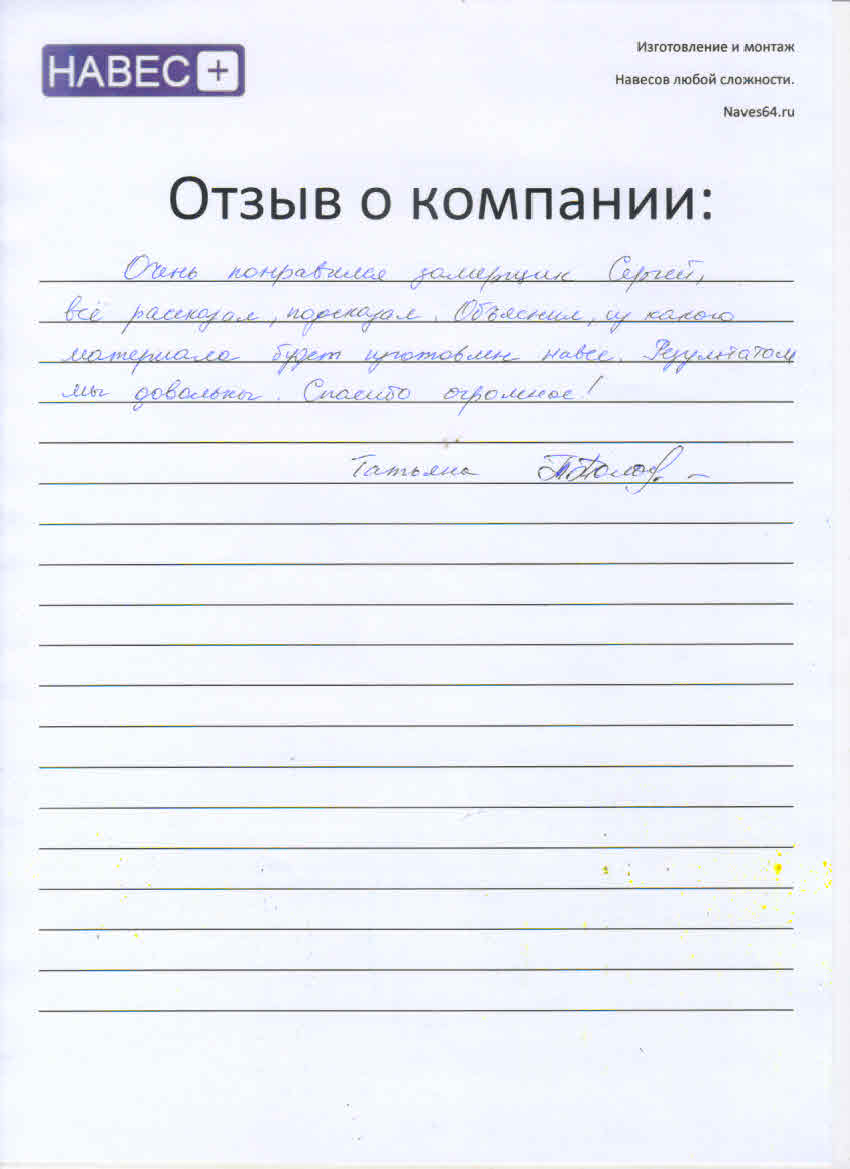 НАВЕС +
Изготовление и монтаж
Навесов любой сложности.
Naves64.ru
Отзыв о компании:
Очень понравился замерщик Сергей,
всё рассказал, подсказал. Объяснил, из какого
материала будет изготовлен навес. Результатом
мы довольны. Спасибо огромное!
Татьяна